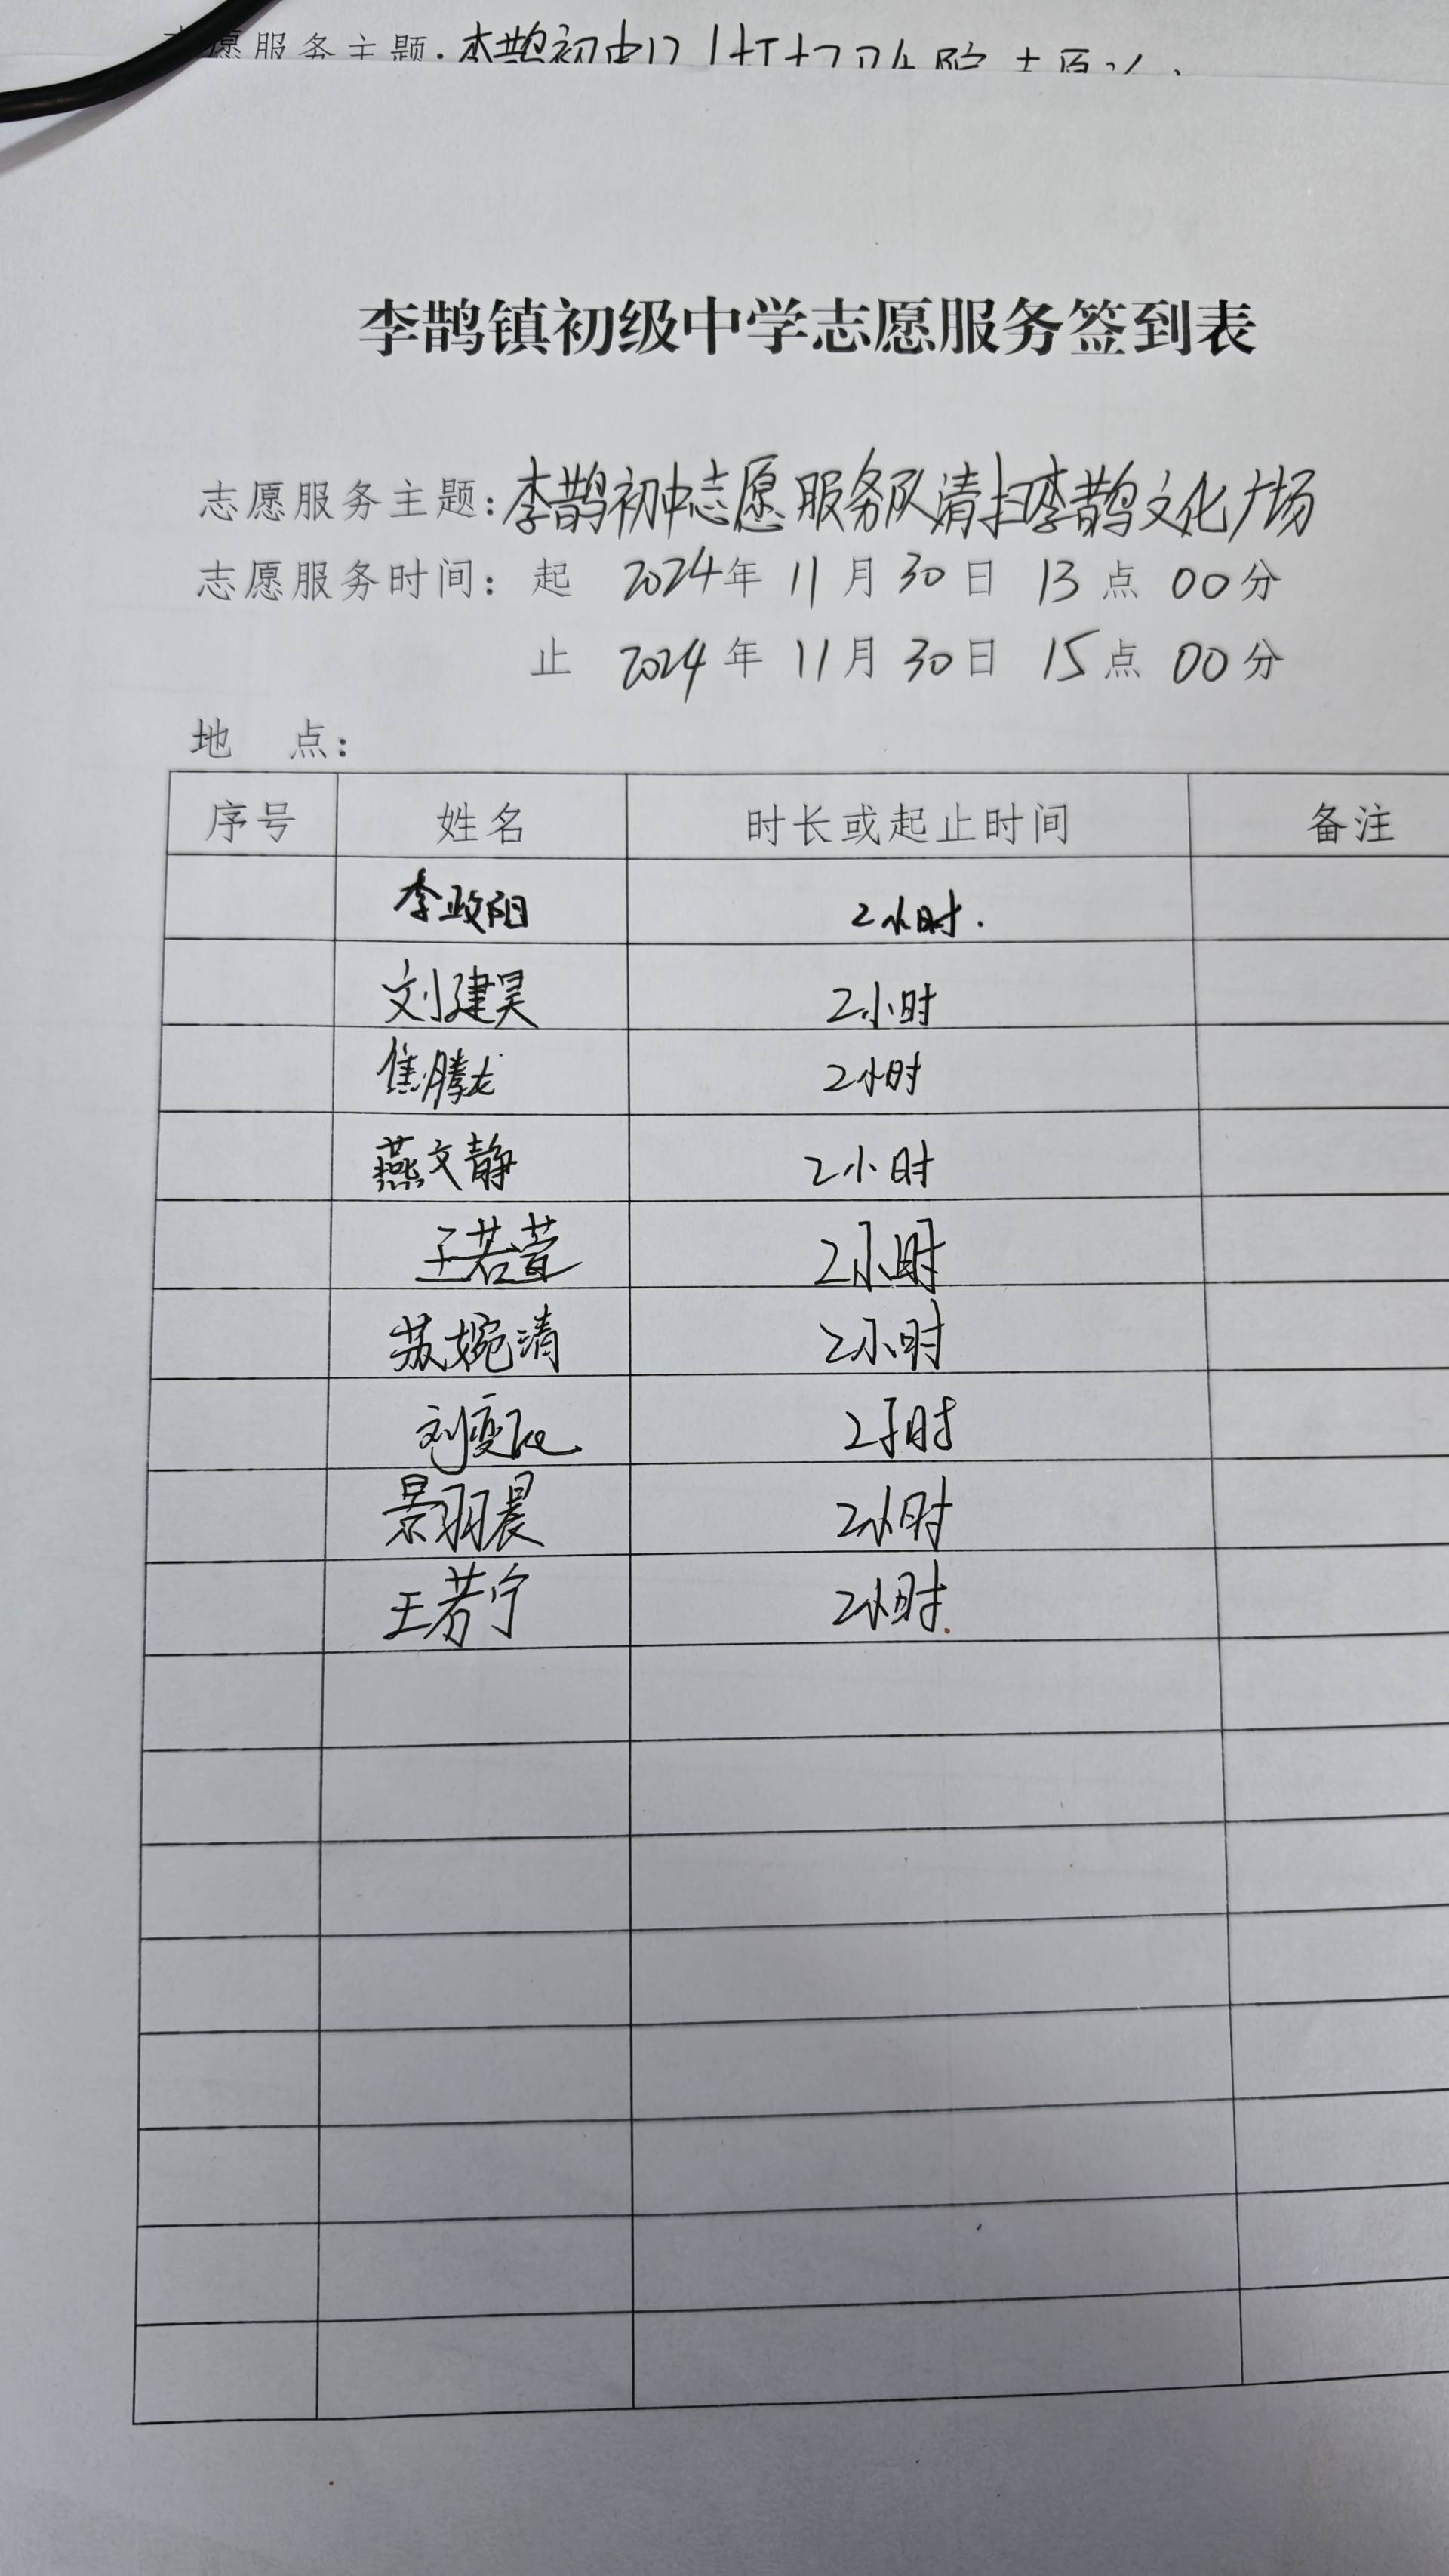 愿服务主题:李鹊初中
李鹊镇初级中学志愿服务签到表
志愿服务主题:李鹊初中志愿服务队清扫李鹊文化广场
志愿服务时间: 起 2024年 11月 30日 13点 00分
止 2024年 11月 30日 15点 00分
地 点:
序号 姓名 时长或起止时间 备注
李政阳 2小时.
刘建昊 2小时
焦腾龙 2小时
燕文静 2小时
王若萱 2小时
苏婉清 2小时
刘变 2小时
景羽晨 2小时
王若宁 2小时.